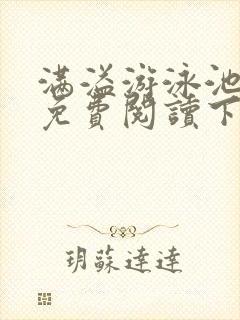 满溢游泳池
免費閱讀下
玥蘇達達